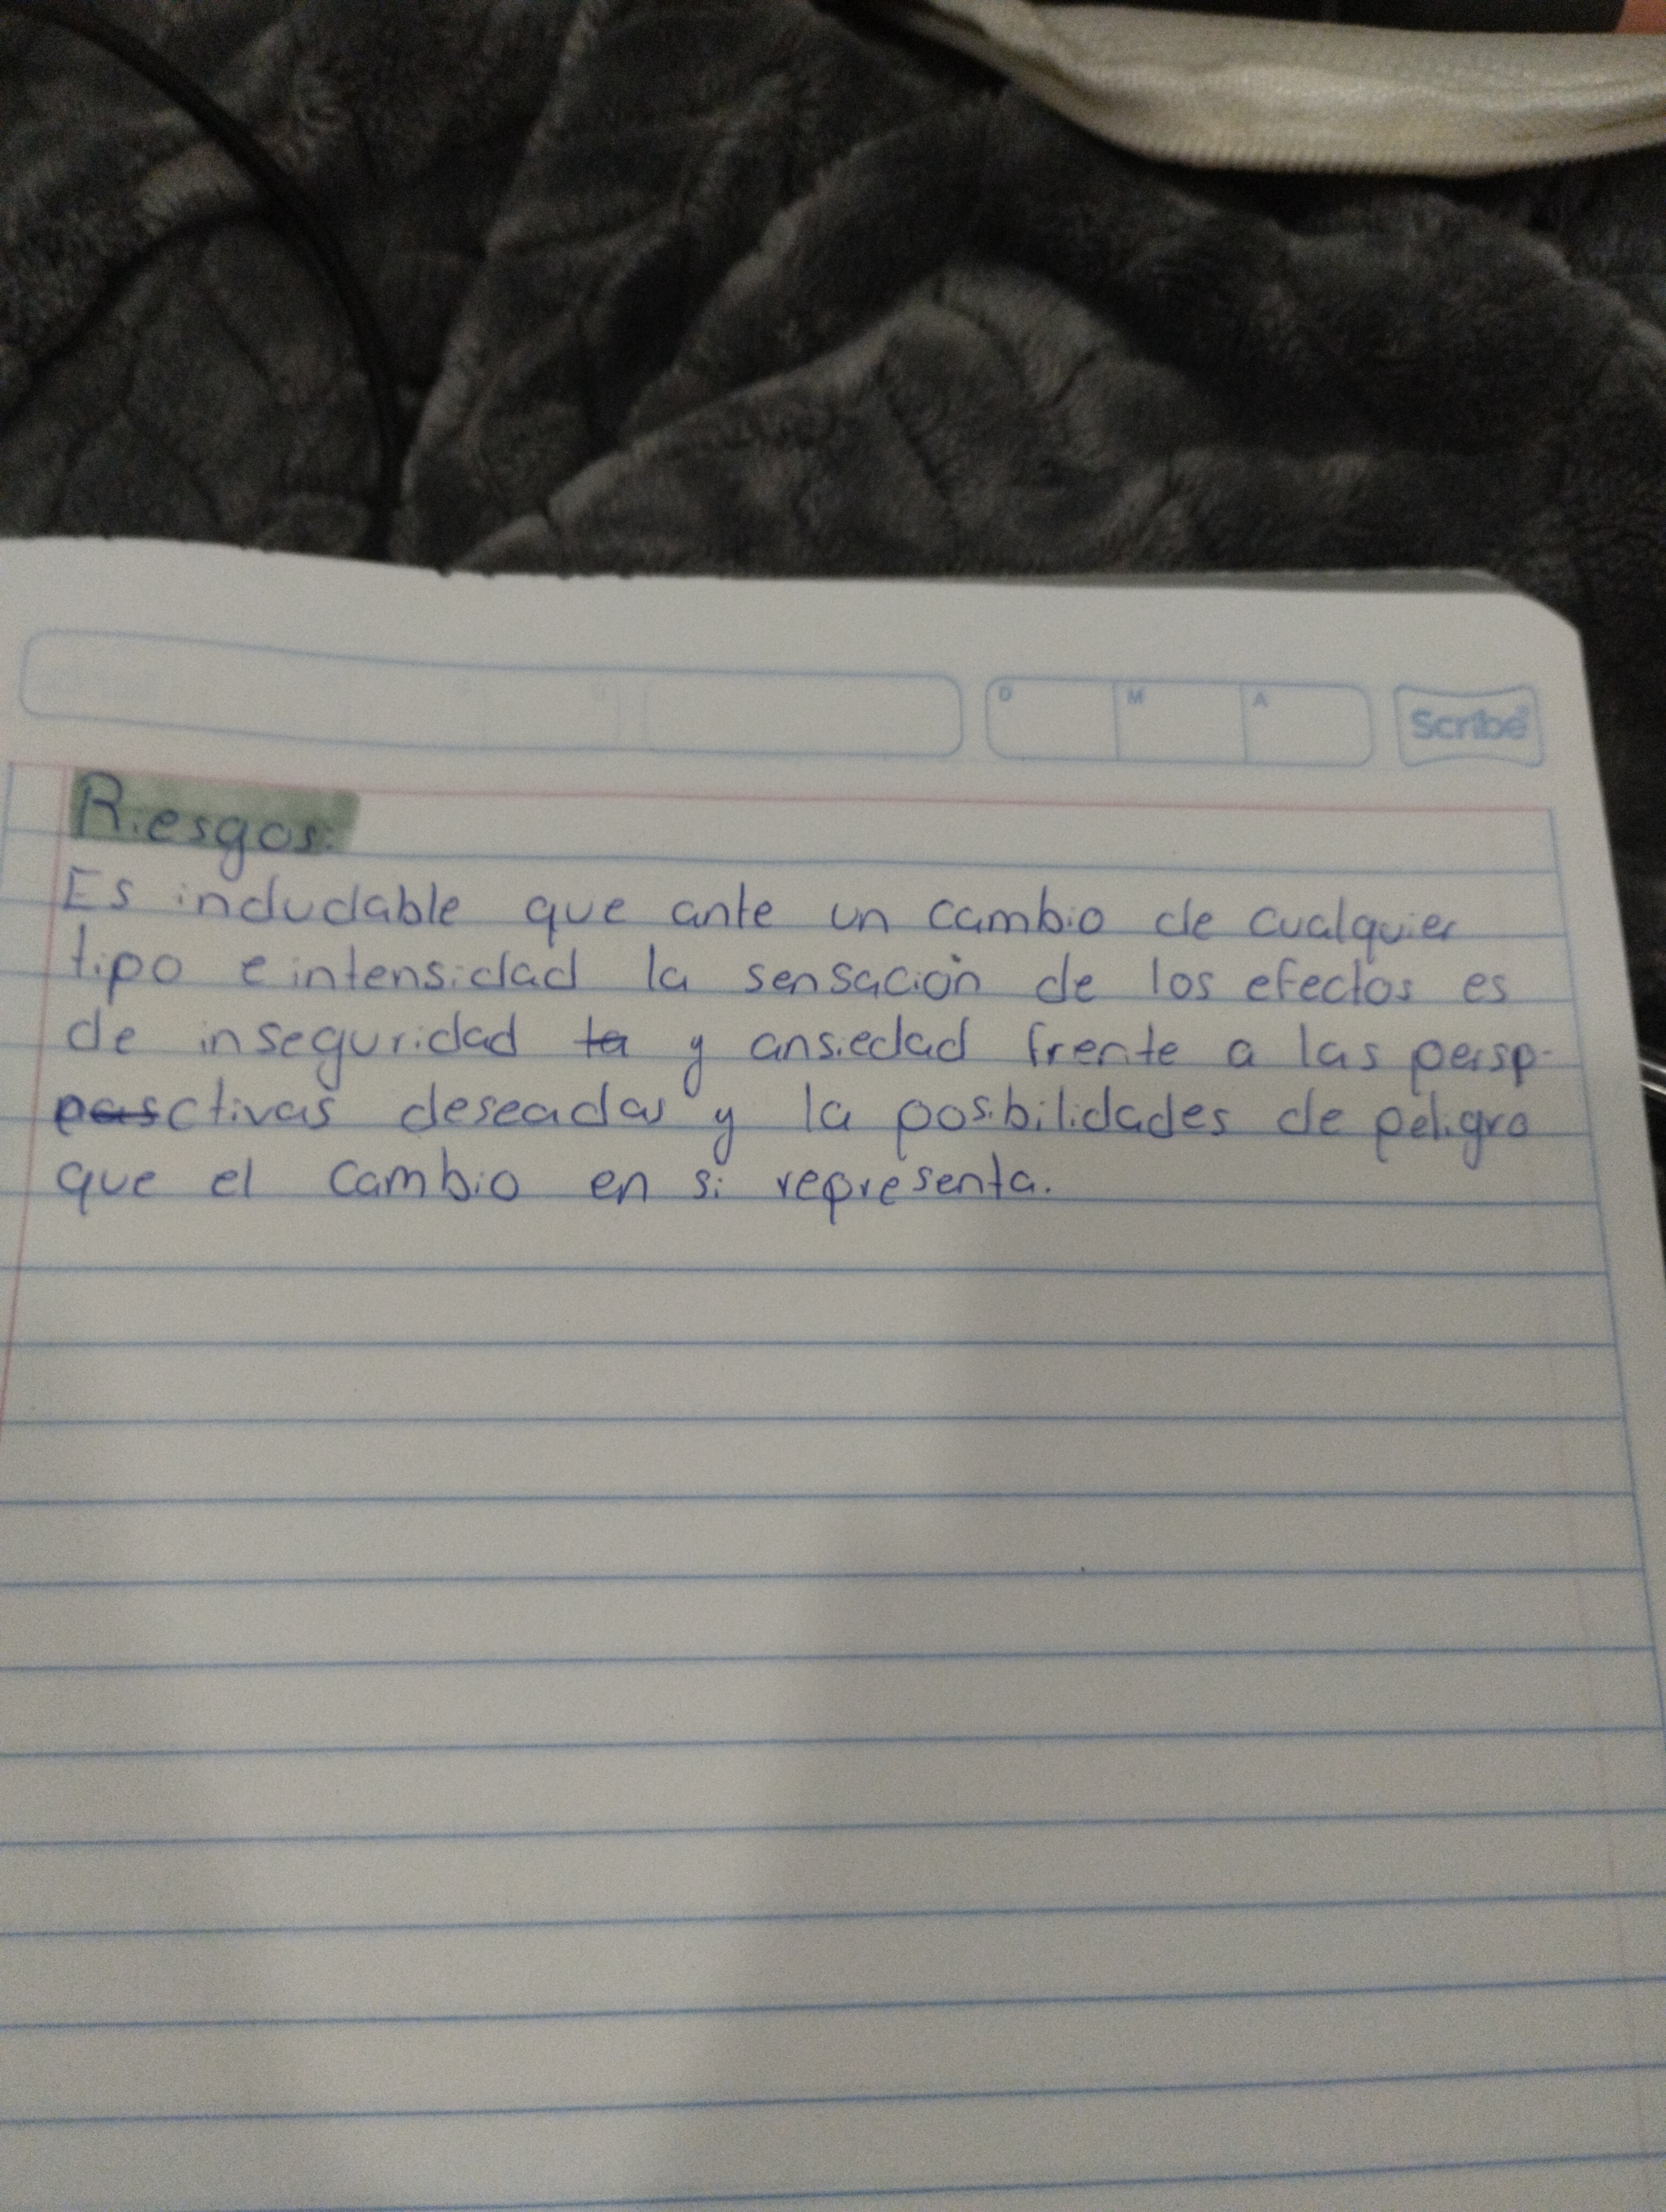 D M A Scribe
Riesgos:
Es indudable que ante un cambio de cualquier
tipo e intensidad la sensación de los efectos es
de inseguridad ta y ansiedad frente a las persp-
ctivas deseadas y la posibilidades de peligro
que el cambio en si representa.